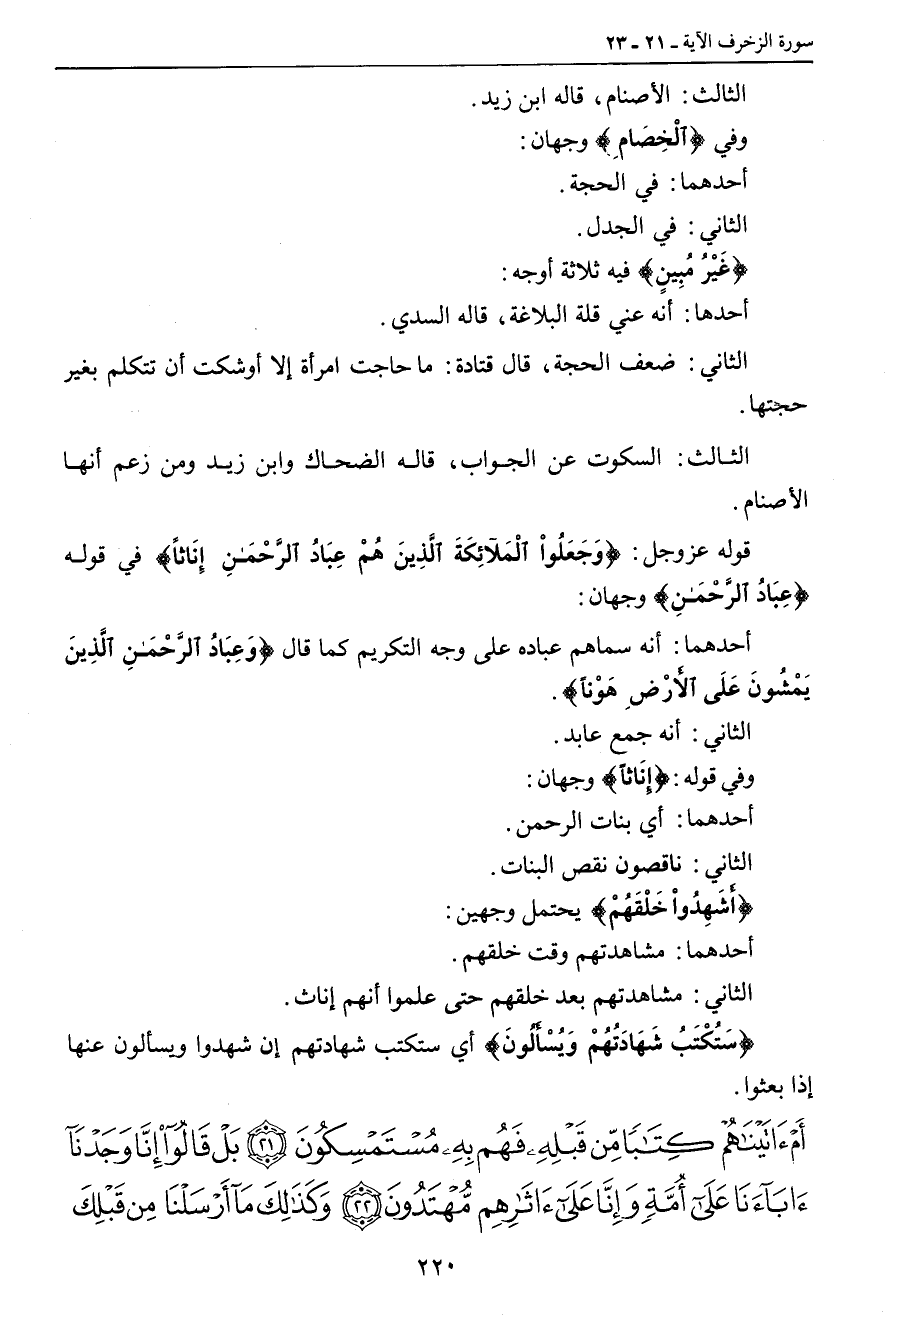 سورة الزخرف الآية ـ ٢١ ـ ٢٣
الثالث: الأصنام، قاله ابن زيد.
وفي ﴿ٱلْخِصَامِ﴾ وجهان:
أحدهما: في الحجة.
الثاني: في الجدل.
﴿غَيْرُ مُبِينٍ﴾ فيه ثلاثة أوجه:
أحدها: أنه عني قلة البلاغة، قاله السدي.
الثاني: ضعف الحجة، قال قتادة: ما حاجت امرأة إلا أوشكت أن تتكلم بغير
حجتها.
الثالث: السكوت عن الجواب، قاله الضحاك وابن زيد ومن زعم أنها
الأصنام.
قوله عزوجل: ﴿وَجَعَلُواْ ٱلْمَلَآئِكَةَ ٱلَّذِينَ هُمْ عِبَادُ ٱلرَّحْمَـٰنِ إِنَاثاً﴾ في قوله
﴿عِبَادُ ٱلرَّحْمَـٰنِ﴾ وجهان:
أحدهما: أنه سماهم عباده على وجه التكريم كما قال ﴿وَعِبَادُ ٱلرَّحْمَـٰنِ ٱلَّذِينَ
يَمْشُونَ عَلَى ٱلأَرْضِ هَوْناً﴾.
الثاني: أنه جمع عابد.
وفي قوله: ﴿إِنَاثاً﴾ وجهان:
أحدهما: أي بنات الرحمن.
الثاني: ناقصون نقص البنات.
﴿أَشَهِدُواْ خَلْقَهُمْ﴾ يحتمل وجهين:
أحدهما: مشاهدتهم وقت خلقهم.
الثاني: مشاهدتهم بعد خلقهم حتى علموا أنهم إناث.
﴿سَتُكْتَبُ شَهَادَتُهُمْ وَيُسْأَلُونَ﴾ أي ستكتب شهادتهم إن شهدوا ويسألون عنها
إذا بعثوا.
أَمْ ءَاتَيْنَٰهُمْ كِتَٰبًا مِّن قَبْلِهِۦ فَهُم بِهِۦ مُسْتَمْسِكُونَ ٢١ بَلْ قَالُوٓا۟ إِنَّا وَجَدْنَآ
ءَابَآءَنَا عَلَىٰٓ أُمَّةٍ وَإِنَّا عَلَىٰٓ ءَاثَٰرِهِم مُّهْتَدُونَ ٢٢ وَكَذَٰلِكَ مَآ أَرْسَلْنَا مِن قَبْلِكَ
٢٢٠